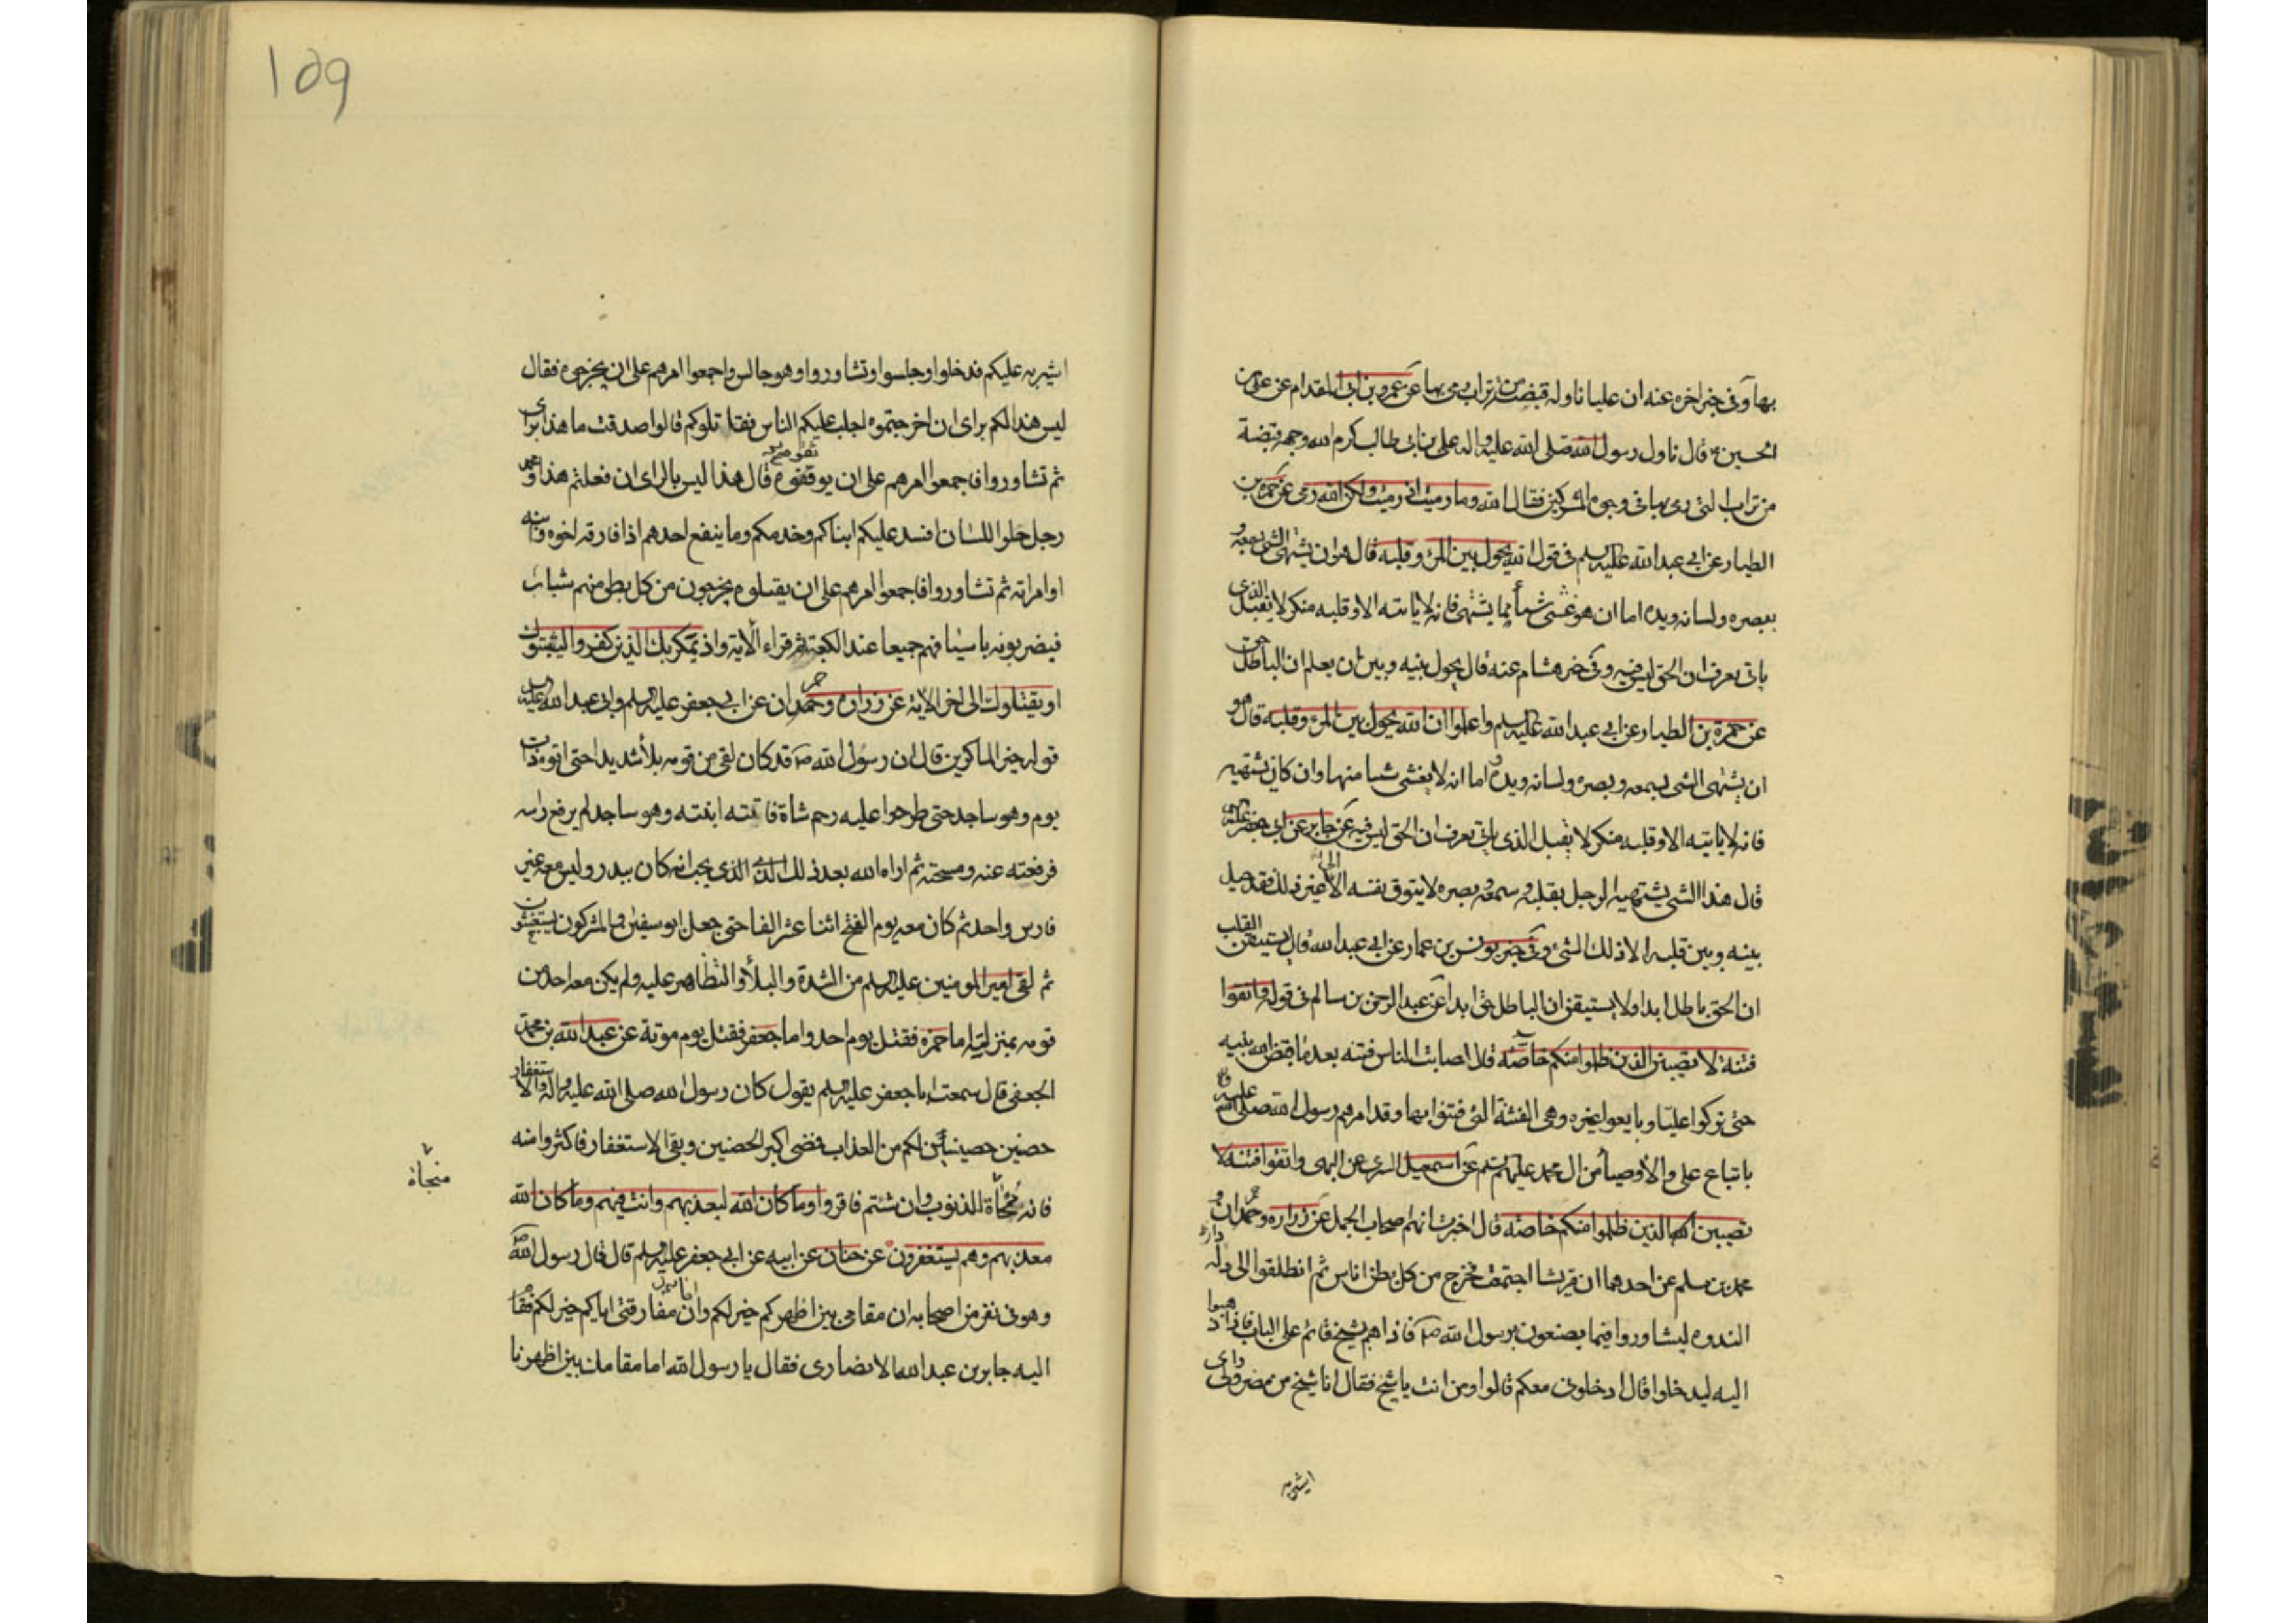 بها وفي خبر اخره عنه ان عليا ناوله قبضة من تراب رمى بها عن عمرو بن ابى المقدام عن على بن
الحسين ع قال ناول رسول الله صلى الله عليه واله على بن ابى طالب كرم الله وجهه قبضة
من تراب التى رمى بها فى وجوه المشركين فقال الله وما رميت اذ رميت ولكن الله رمى عن حمزه بن
الطيار عن ابى عبد الله عليه السلم فى قول الله يحول بين المرء وقلبه قال هو ان يشتهى الشئ بسمعه و
ببصره ولسانه ويده اما ان هو غشى شيأ مما يشتهى فانه لا ياتيه الا وقلبه منكر لا يقبل الذى
ياتى يعرف ان الحق ليس فيه وفى خبر هشام عنه قال يحول بينه وبين ان يعلم ان الباطل حق
عن حمزة بن الطيار عن ابى عبد الله عليه السلم واعلموا ان الله يحول بين المرء وقلبه قال هو
ان يشتهى الشى بسمعه وبصره ولسانه ويده اما انه لا يغشى شيا منها وان كان يشتهيه
فانه لا ياتيه الا وقلبه منكر لا يقبل الذى ياتى يعرف ان الحق ليس فيه عن جابر عن ابى جعفر عليه السلم
قال هذا الشى يشتهيه الرجل بقلبه وسمعه وبصره لا يتوق نفسه الى غير ذلك فقد حيل
بينه وبين قلبه الا ذلك الشئ وفى خبر يونس بن عمار عن ابى عبد الله قال لا يستيقن القلب
ان الحق باطل ابدا ولا يستيقن ان الباطل حق ابدا عن عبد الرحمن بن سالم فى قوله واتقوا
فتنة لا تصيبن الذين ظلموا منكم خاصة قال اصابت الناس فتنه بعد ما قبض الله نبيه
حتى تركوا عليا وبايعوا غيره وهى الفتنة التى فتنوا بها وقد امرهم رسول الله صلى الله عليه واله
باتباع على والاوصيأ من ال محمد عليهم السلم عن اسمعيل السرى عن البهى واتقوا فتنة لا
تصيبن الذين ظلموا منكم خاصة قال اخبرت انهم اصحاب الجمل عن زراره وحمران و
محمد بن مسلم عن احدهما ان قريشا اجتمعت فخرج من كل بطن اناس ثم انطلقوا الى دار
الندوه ليشاوروا فيما يصنعون برسول الله ص فاذا هم بشيخ قائم على الباب فاذا ذهبوا
اليه ليدخلوا قال ادخلونى معكم قالوا ومن انت يا شيخ فقال انا شيخ من مضر ولى راى
اشير به
109
اشير به عليكم فدخلوا وجلسوا وتشاوروا وهو جالس واجمعوا امرهم على ان يخرجوه فقال
ليس هذا لكم براى ان اخرجتموه اجلب عليكم الناس فقاتلوكم قالوا صدقت ما هذا براى
ثم تشاوروا فاجمعوا امرهم على ان يوقفوه قال هذا ليس بالراى ان فعلتم هذا ومحمد
رجل حلو اللسان افسد عليكم ابناكم وخدمكم وما ينفع احدهم اذا فارقه اخوه وابنه
او امراته ثم تشاوروا فاجمعوا امرهم على ان يقتلوه يخرجون من كل بطن منهم شباب
فيضربونه باسيافهم جميعا عند الكعبة ثم قراء الاية واذ يمكر بك الذين كفروا ليثبتوك
او يقتلوك الى اخر الاية عن زراره وحمران عن ابى جعفر عليه السلم وابى عبد الله عليه السلم
قوله خير الماكرين قال ان رسول الله ص قد كان لقى من قومه بلأ شديدا حتى اتوه ذات
يوم وهو ساجد حتى طرحوا عليه رحم شاة فاتته ابنته وهو ساجد لم يرفع راسه
فرفعته عنه ومسحته ثم اراه الله بعد ذلك الذى يحب انه كان ببدر وليس معه غير
فارس واحد ثم كان معه يوم الفتح اثنا عشر الفا حتى جعل ابو سفين والمشركون يستغيثون
ثم لقى امير المومنين عليه السلم من الشدة والبلأ والتظاهر عليه ولم يكن معه احد من
قومه بمنزلته اما حمزه فقتل يوم احد واما جعفر فقتل يوم موتة عن عبد الله بن محمد
الجعفى قال سمعت ابا جعفر عليه السلم يقول كان رسول الله صلى الله عليه واله والاستغفار
حصنين حصينين لكم من العذاب فمضى اكبر الحصنين وبقى الاستغفار فاكثروا منه
منجاة
فانه منجاة للذنوب وان شئتم فاقروا وما كان الله ليعذبهم وانت فيهم وما كان الله
معذبهم وهم يستغفرون عن حنان عن ابيه عن ابى جعفر عليه السلم قال قال رسول الله ص
وهو فى نفر من اصحابه ان مقامى بين اظهركم خير لكم وان مفارقتى اياكم خير لكم فقام
اليه جابر بن عبد الله الانصارى فقال يا رسول الله اما مقامك بين اظهرنا